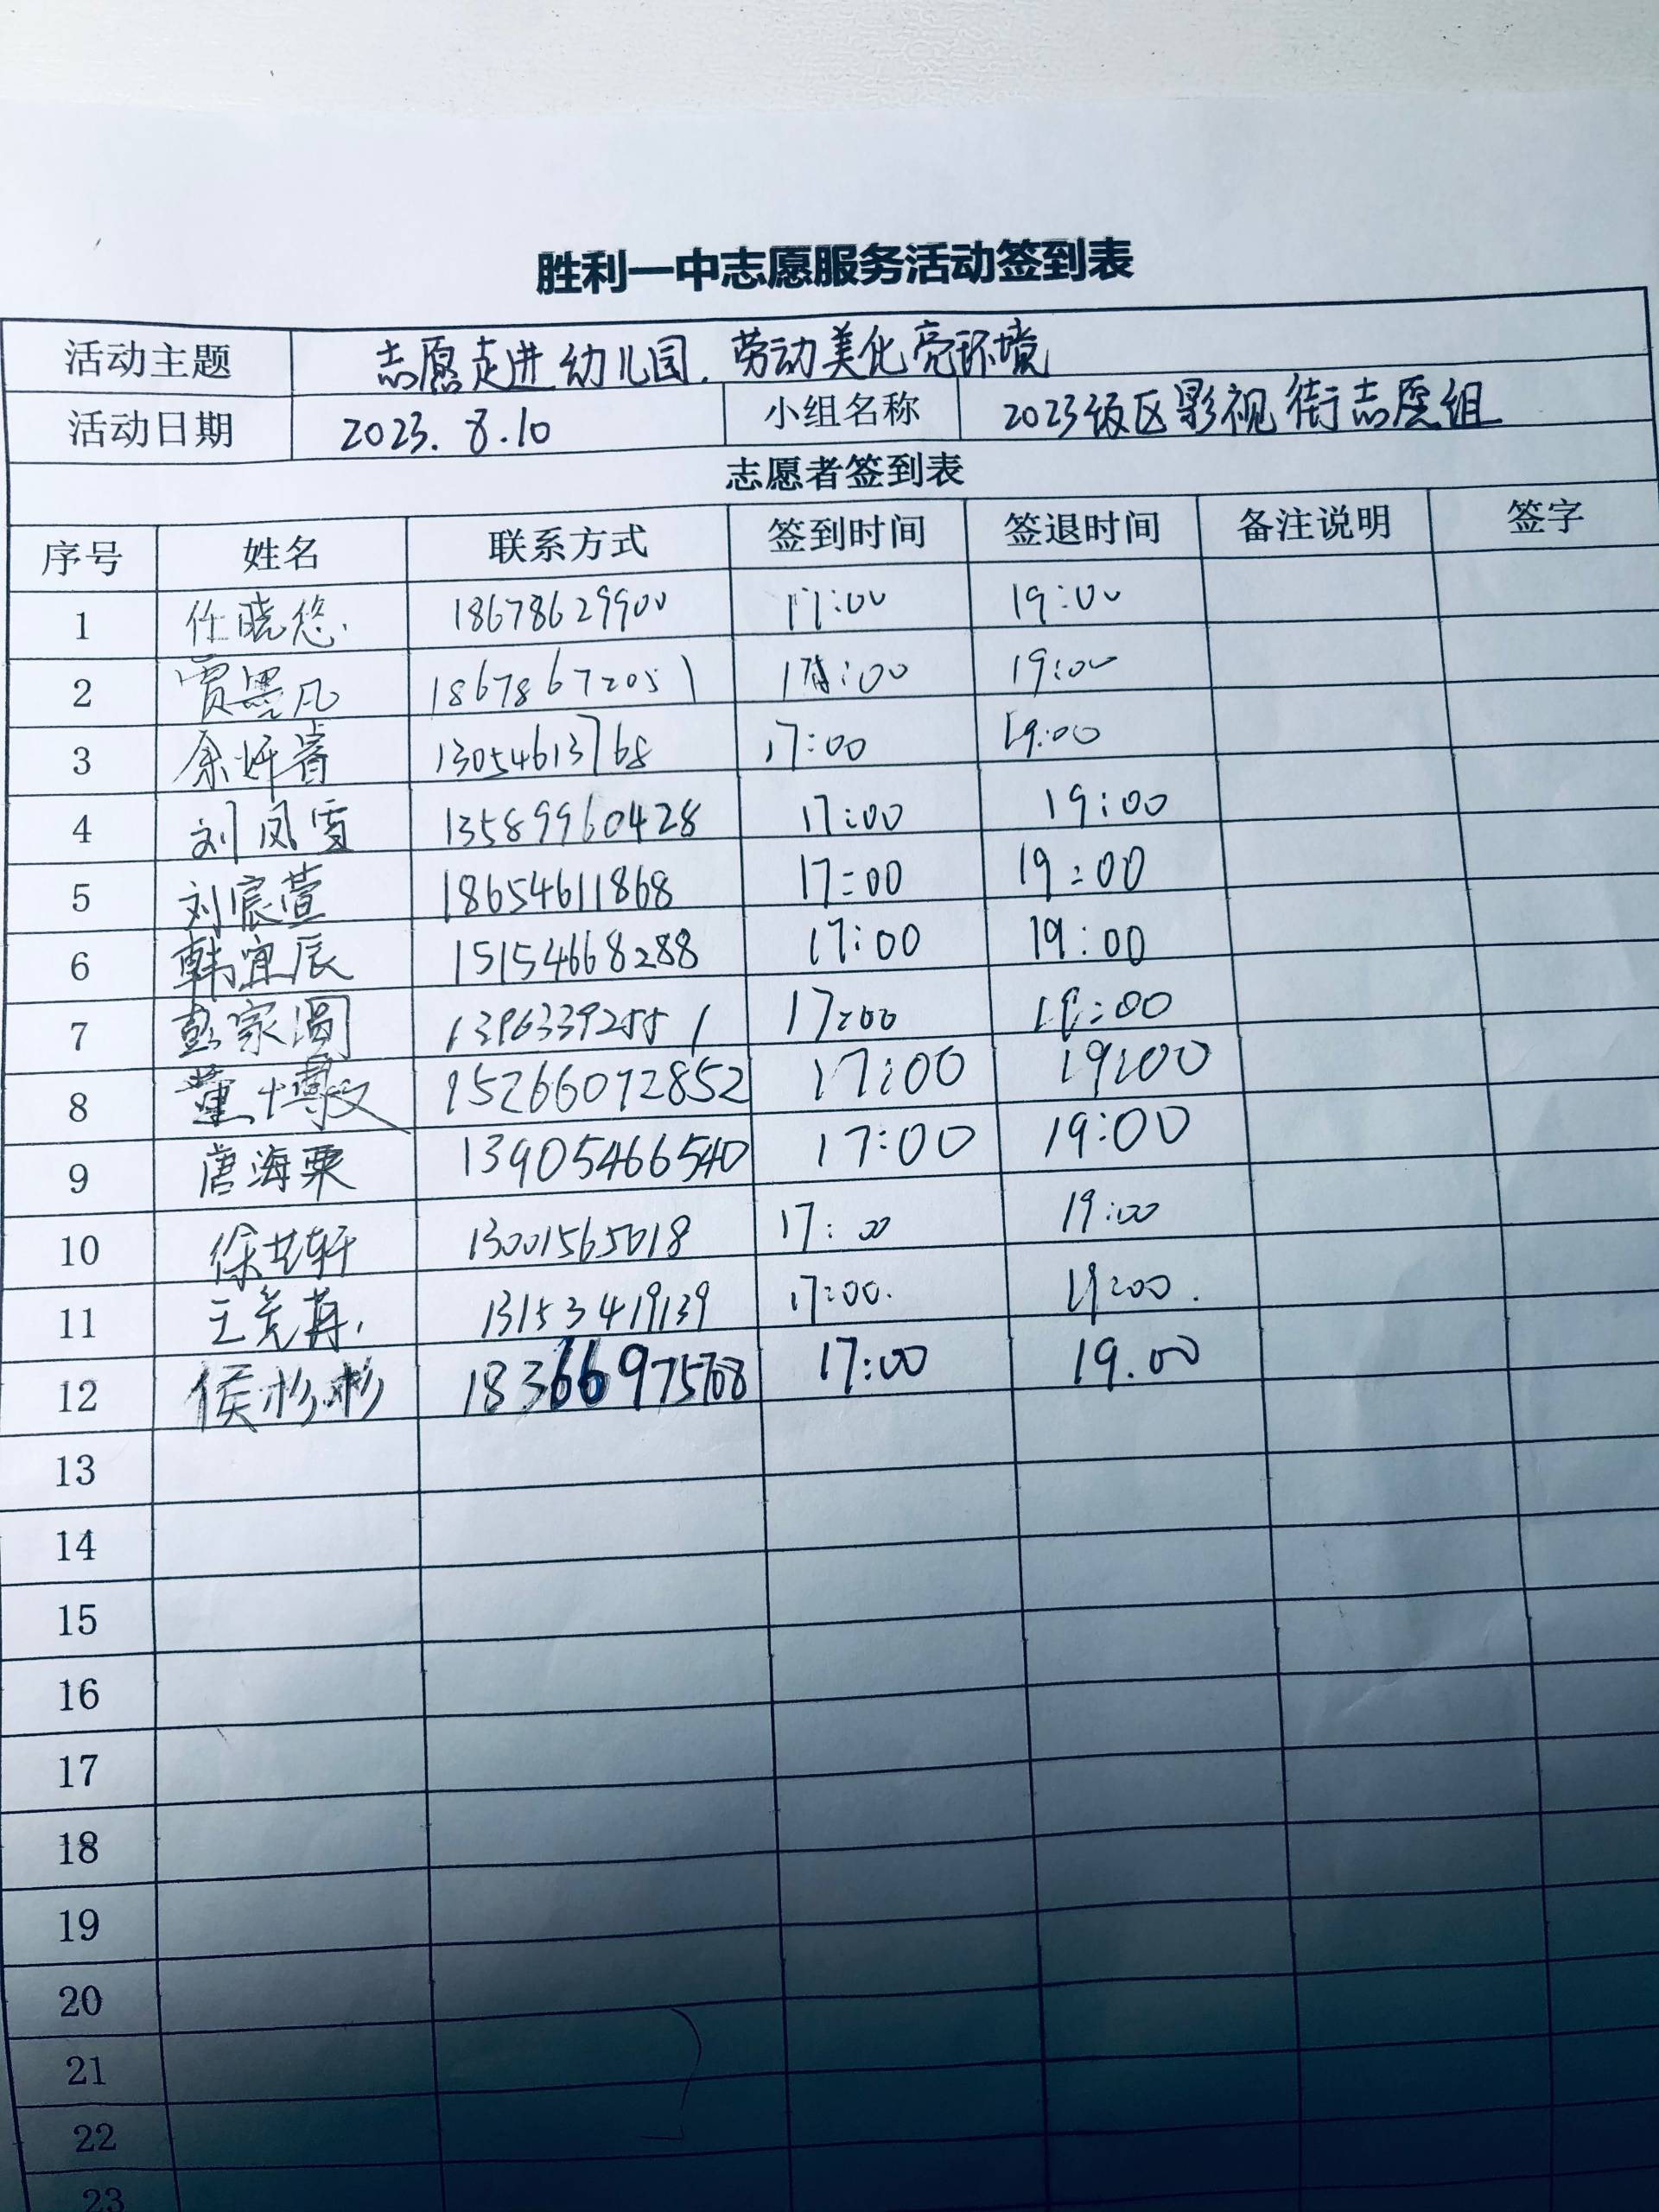 胜利一中志愿服务活动签到表
活动主题 志愿走进幼儿园.劳动美化亮环境
活动日期 2023.8.10 小组名称 2023级区影视街志愿组
志愿者签到表
序号 姓名 联系方式 签到时间 签退时间 备注说明 签字
1 任晓悠. 18678629900 17:00 19:00
2 贾墨凡 18678672051 17:00 19:00
3 13054613768 17:00 19:00
4 刘凤雪 13589960428 17:00 19:00
5 刘宸萱 18654611868 17:00 19:00
6 韩宜辰 15154668288 17:00 19:00
7 彭家圆 17:00 19:00
8 董博文 15266072852 17:00 19:00
9 唐海粟 13905466540 17:00 19:00
10 徐艺轩 13001565018 17:00 19:00
11 13153419139 17:00. 19:00.
12 侯杉杉 17:00 19.00
13
14
15
16
17
18
19
20
21
22
23